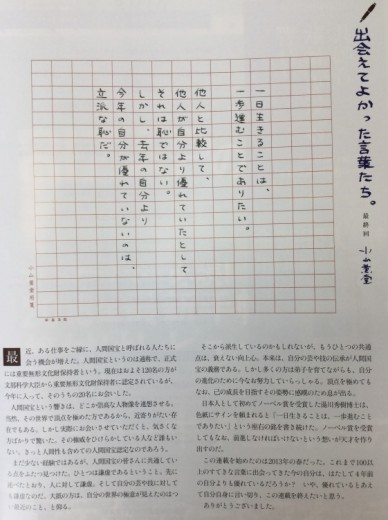 出会えてよかった言葉たち。
最終回 小山薫堂
一日生きることは、
一歩進むことでありたい。
他人と比較して、
他人が自分より優れていたとして
それは恥ではない。
しかし、去年の自分より
今年の自分が優れていないのは、
立派な恥だ。
小山薫堂用箋
最近、ある仕事をご縁に、人間国宝と呼ばれる人たちに
会う機会が増えた。人間国宝というのは通称で、正式
には重要無形文化財保持者という。現在はおよそ120名の方が
文部科学大臣から重要無形文化財保持者に認定されているが、
今年に入って、そのうちの20名にお会いした。
人間国宝という響きは、どこか崇高な人物像を連想させる。
当然、その世界で頂点を極めた方であるから、近寄りがたい存
在でもある。しかし実際にお会いさせていただくと、気さくな
方ばかりで驚いた。その権威をひけらかしている人など誰もい
ない。きっと人間性も含めての人間国宝認定なのであろう。
まだ少ない経験ではあるが、人間国宝の皆さんに共通してい
る点をふたつ見つけた。ひとつは謙虚であるということ。先に
述べたとおり、人に対して謙虚、そして自分の芸や技に対して
も謙虚なのだ。大抵の方は、自分の世界の極意が見えたのはつ
い最近のこと、と仰る。
そこから派生しているのかもしれないが、もうひとつの共通
点は、衰えない向上心。本来は、自分の芸や技の伝承が人間国
宝の義務である。しかし多くの方は弟子を育てながらも、自分
の進化のために今なお努力していらっしゃる。頂点を極めても
なお、己の成長を目指すその姿勢に感嘆のため息が出る。
日本人として初めてノーベル賞を受賞した湯川秀樹博士は、
色紙にサインを頼まれると「一日生きることは、一歩進むこと
でありたい」という座右の銘を書き続けた。ノーベル賞を受賞
してもなお、前進しなければいけないという想いが天才を作り
出すのだ。
この連載を始めたのは2013年の春だった。これまで100以
上のすてきな言葉に出会ってきた今の自分は、はたして4年
前の自分よりも優れているだろうか? いや、優れているとあえ
て自分自身に言い切り、この連載を終えたいと思う。
ありがとうございました。